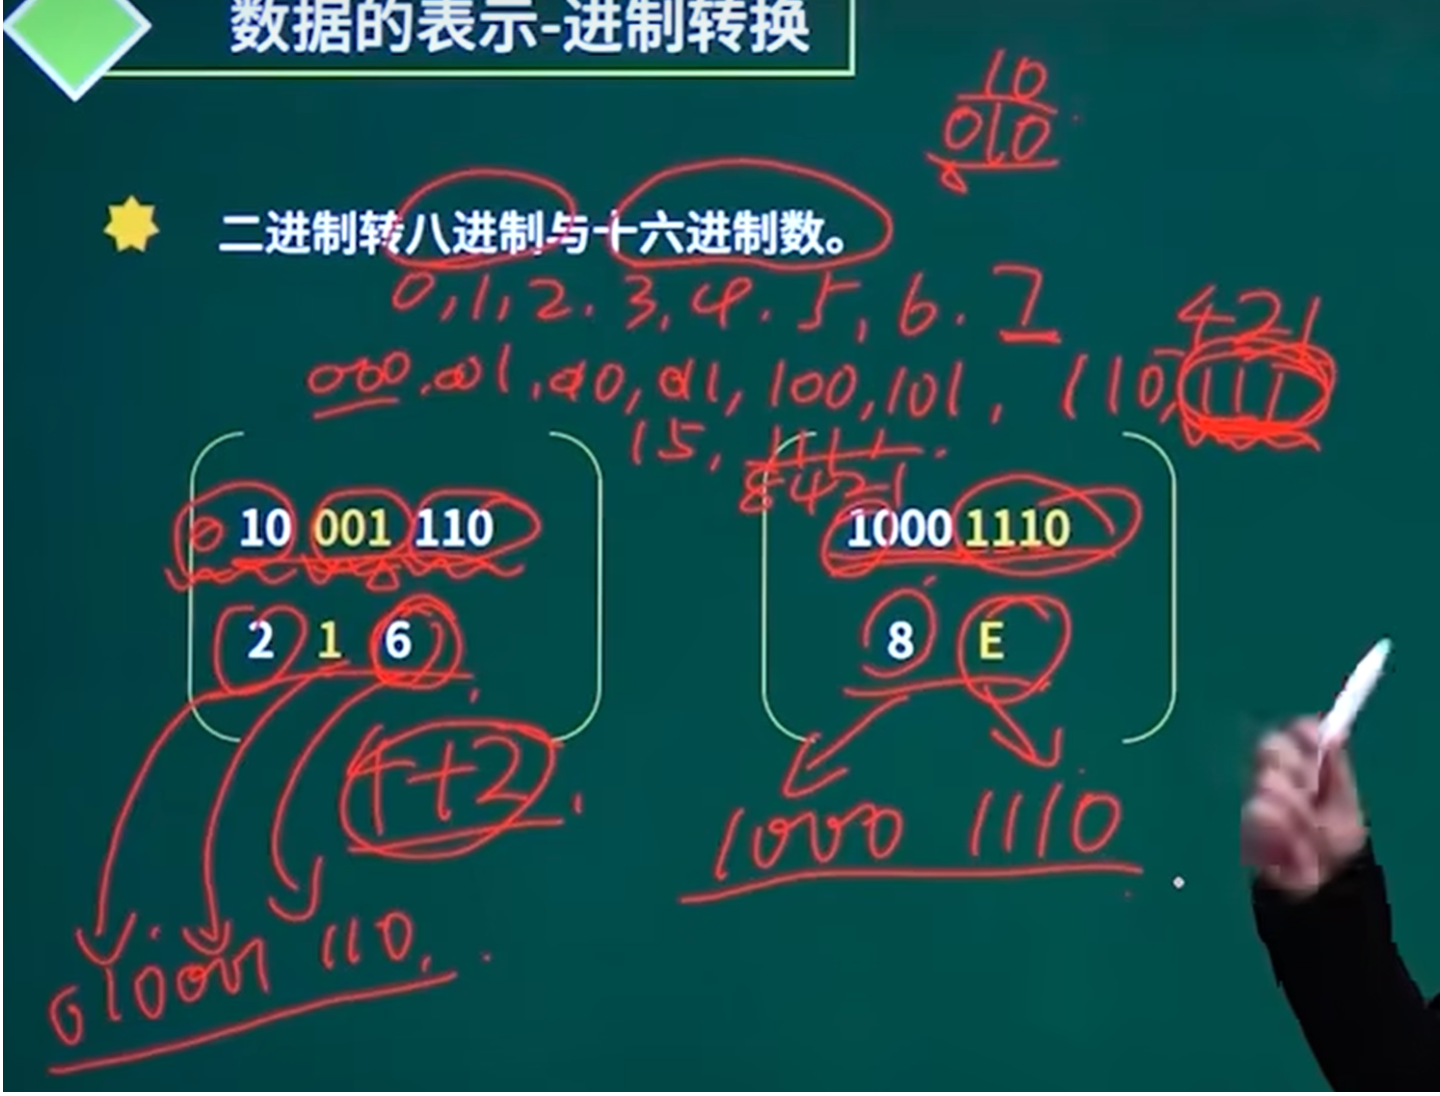 数据的表示-进制转换
10
010
二进制转八进制与十六进制数。
0,1,2.3,4.5,6.7
421
000,001,010,011,100,101,110,111
15,1111.
8421
0 10 001 110
1000 1110
2 1 6
8 E
4+2
1000 1110
010001 110.